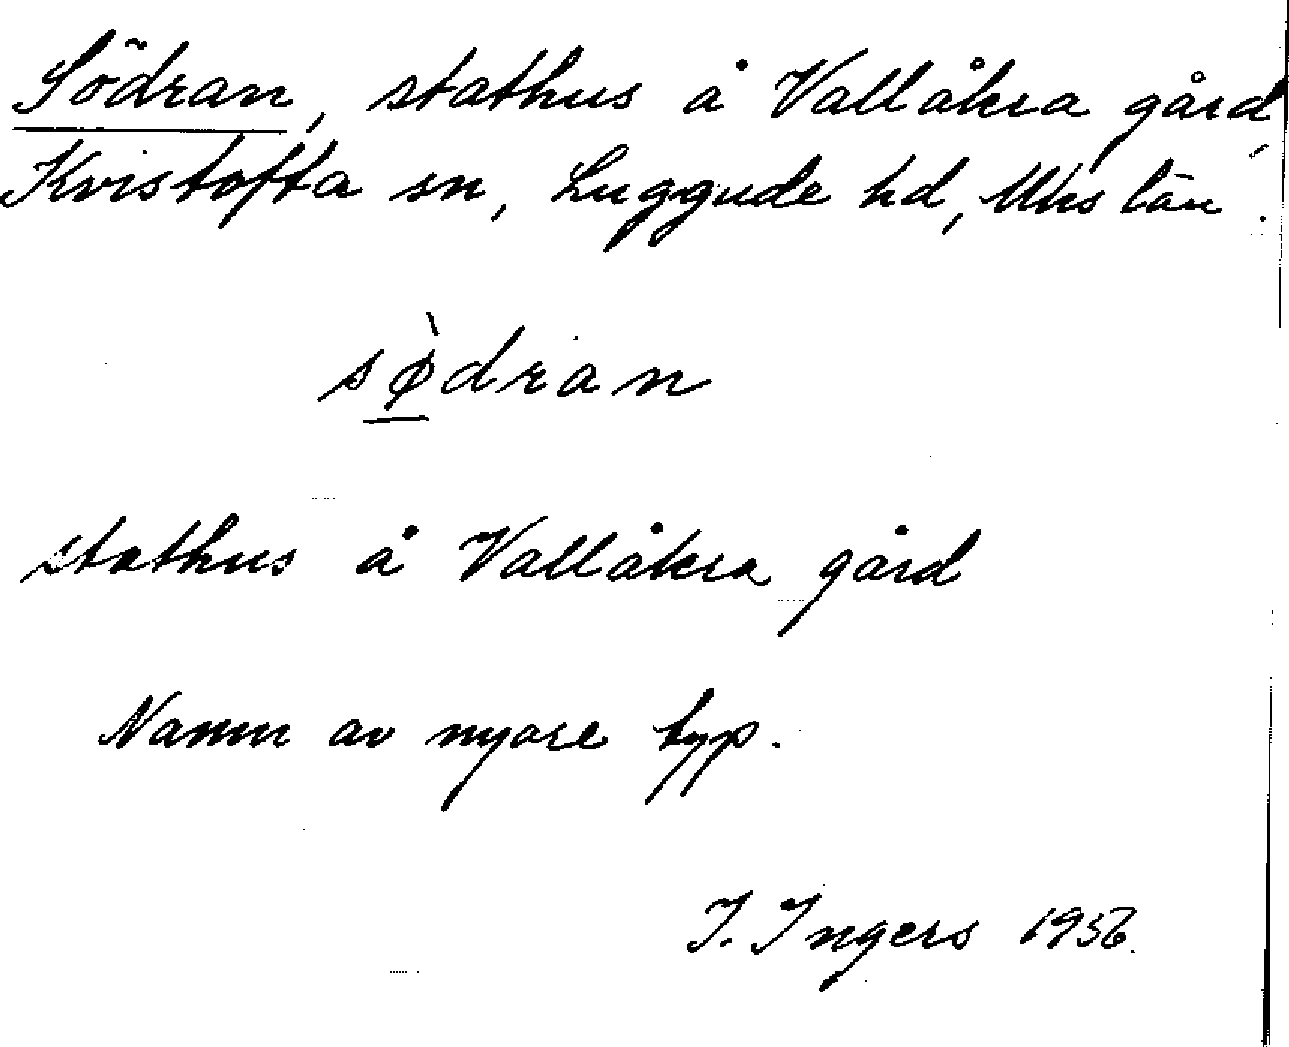 Södran, stathus å Vallåkra gård,
Kvistofta sn, Luggude hd, Mhs län.
sø̀dran
stathus å Vallåkra gård
Namn av nyare typ.
I. Ingers 1956.